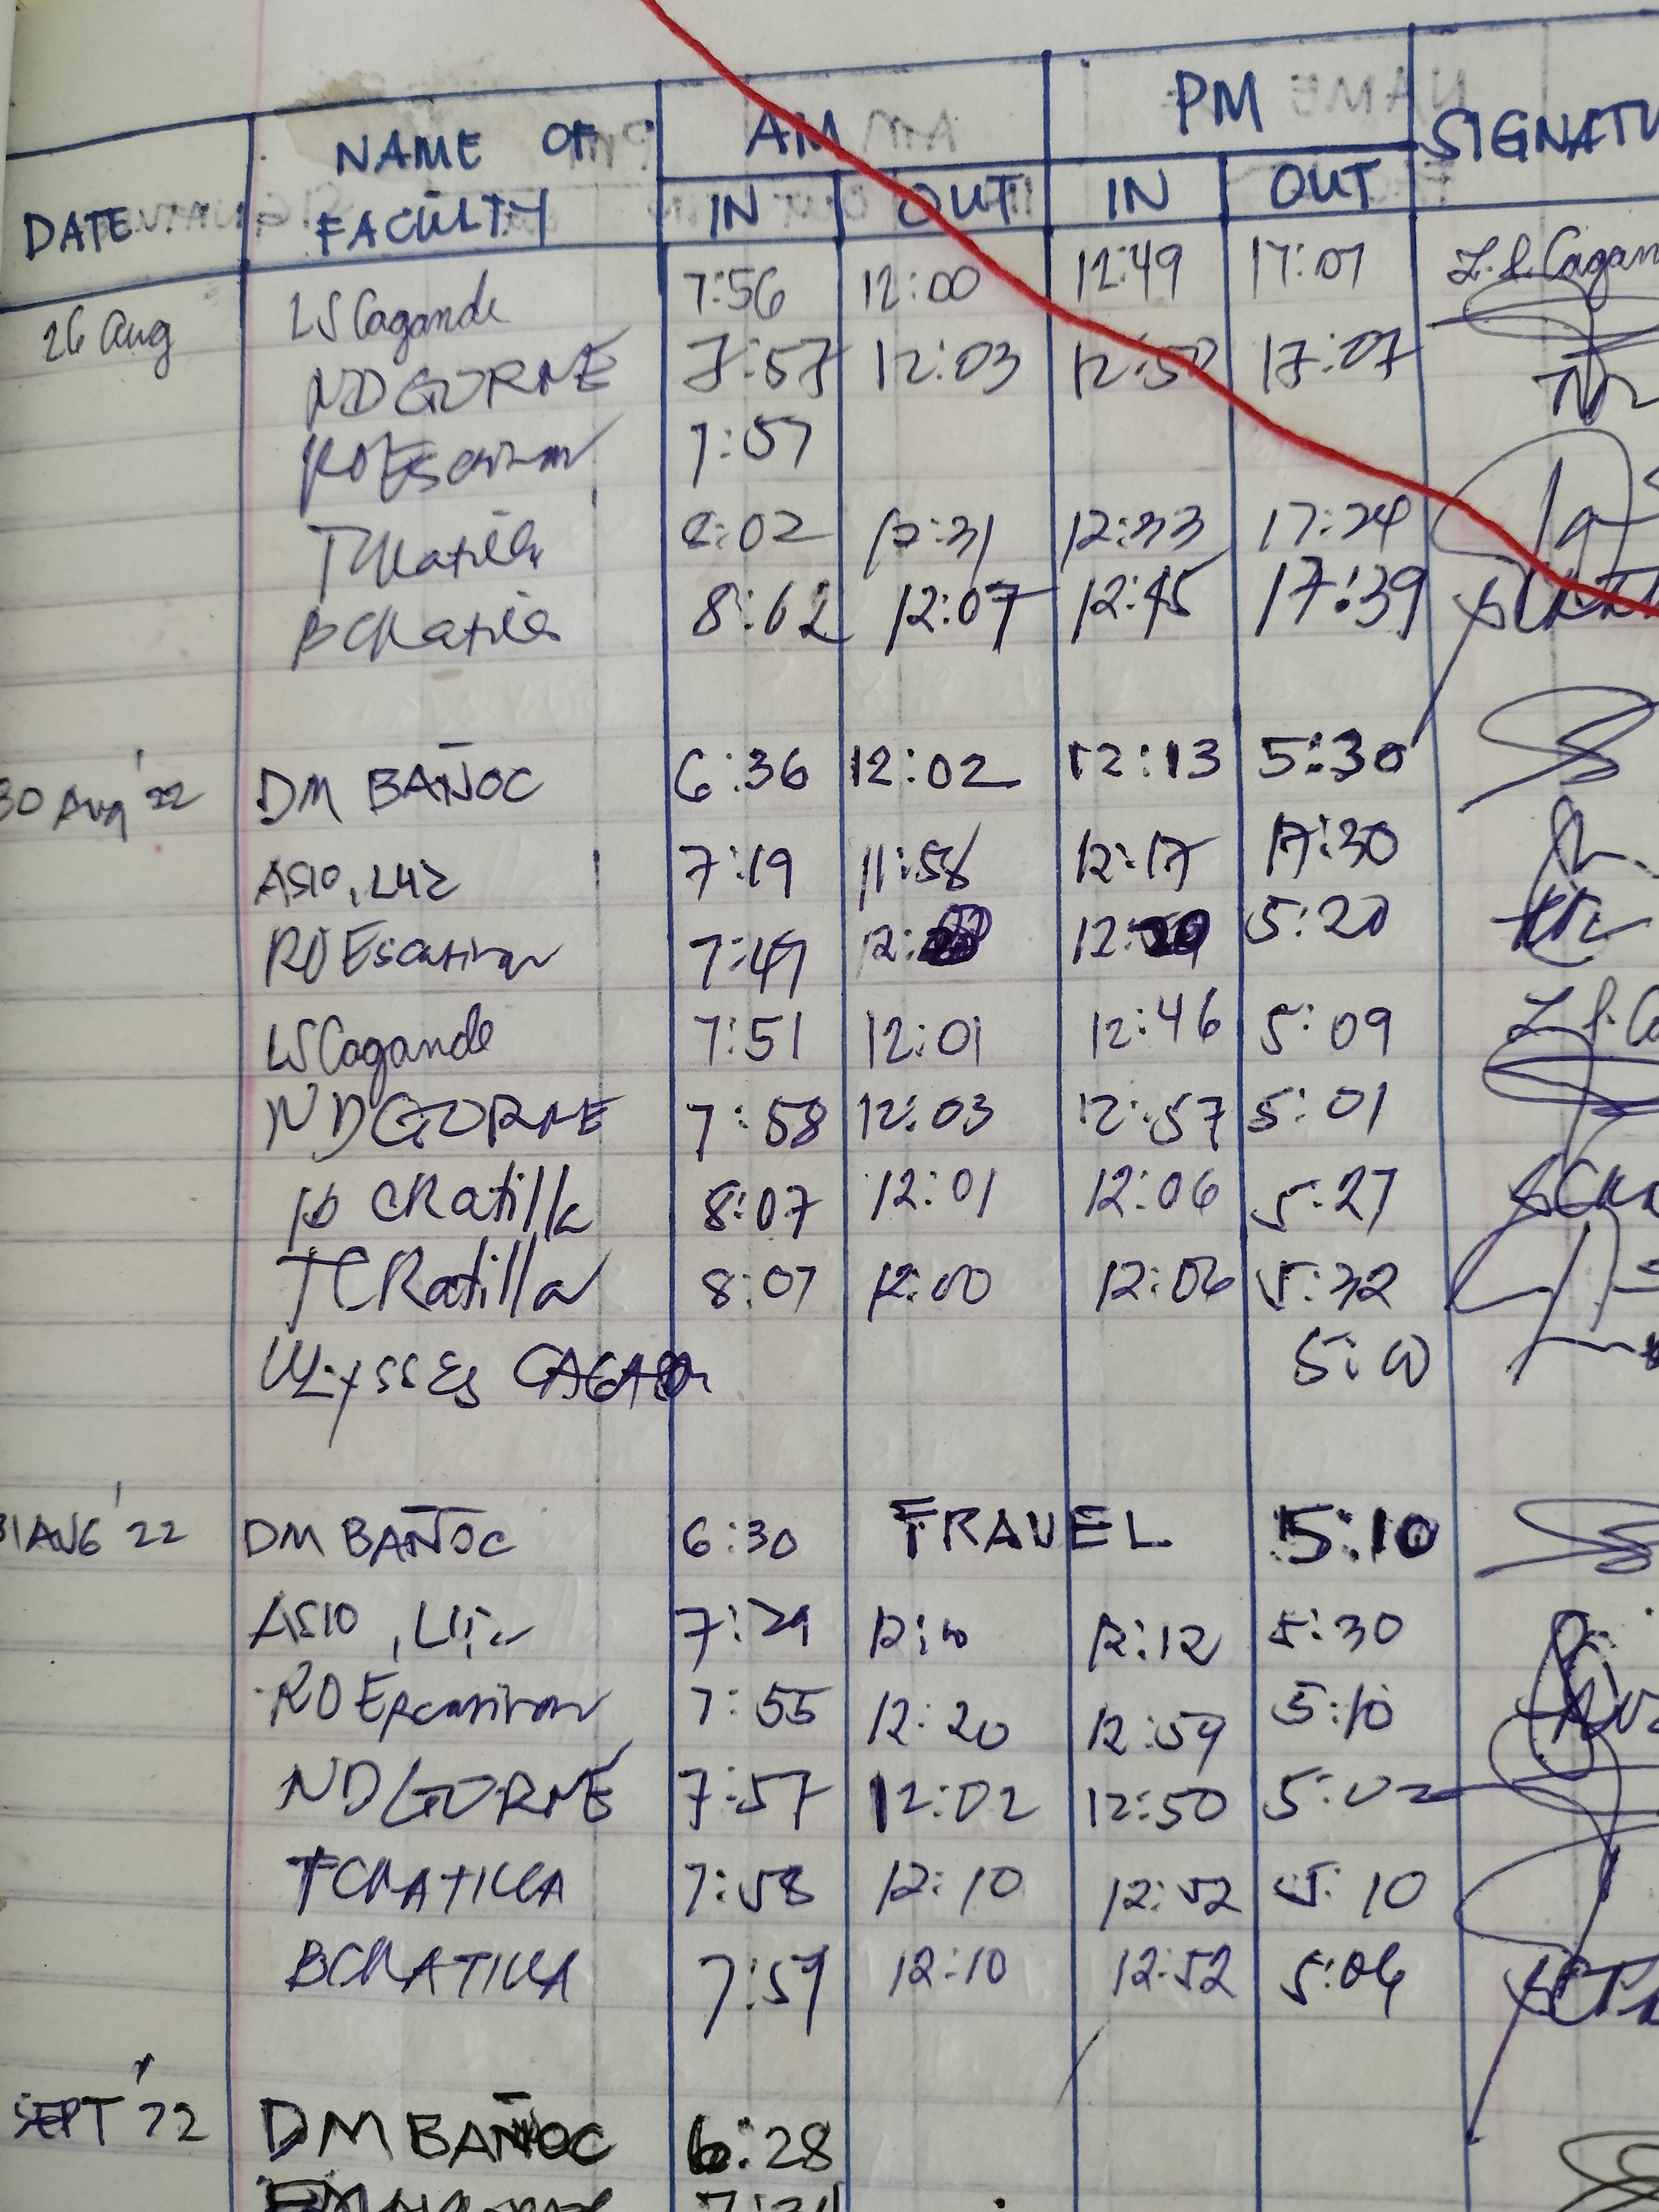 DATE NAME OF FACULTY AM PM SIGNATU
IN OUT IN OUT
26 Aug LS Cagande 7:56 12:00 12:49 17:07 L.S. Cagan
ND GORNE 7:57 12:03 12:50 17:07
RO Escasinas 7:57
TCRatilla 8:02 12:31 12:33 17:24
BCRatilla 8:02 12:07 12:45 17:39
30 Aug '22 DM BAÑOC 6:36 12:02 12:13 5:30
ASIO, LUZ 7:19 11:58 12:17 17:30
RO Escasinas 7:47 12: 12: 5:20
LS Cagande 7:51 12:01 12:46 5:09 L S. Ca
ND GORNE 7:58 12:03 12:57 5:01
B CRatilla 8:07 12:01 12:06 5:27
TCRatilla 8:07 12:00 12:06 5:32
ULYSSES 5:00
31 AUG '22 DM BAÑOC 6:30 TRAVEL 5:10
ASIO, LUZ 7:29 12:10 12:12 5:30
RO Escasinas 7:55 12:20 12:59 5:10
ND GORNE 7:57 12:02 12:50 5:02
TCRATILLA 7:58 12:10 12:52 5:10
BCRATILLA 7:59 12:10 12:52 5:06
SEPT '22 DM BAÑOC 6:28